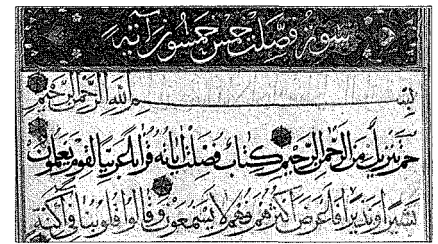 سورة فصلت خمس خمسون آية
بسم الله الرحمن الرحيم
حم تنزيل من الرحمن الرحيم كتاب فصلت آياته قرآنا عربيا لقوم يعلمون
بشيرا ونذيرا فأعرض أكثرهم فهم لا يسمعون وقالوا قلوبنا في أكنة